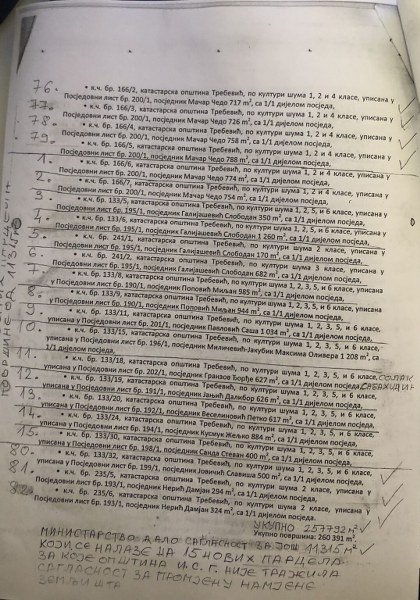 76. • к.ч. бр. 166/2, катастарска општина Требевић, по култури шума 1, 2 и 4 класе, уписана у
Посједовни лист бр. 200/1, посједник Мачар Чедо 717 м², са 1/1 дијелом посједа,
77. • к.ч. бр. 166/3, катастарска општина Требевић, по култури шума 1, 2 и 4 класе, уписана у
Посједовни лист бр. 200/1, посједник Мачар Чедо 726 м², са 1/1 дијелом посједа,
78. • к.ч. бр. 166/4, катастарска општина Требевић, по култури шума 1, 2 и 4 класе, уписана у
Посједовни лист бр. 200/1, посједник Мачар Чедо 758 м², са 1/1 дијелом посједа,
79. • к.ч. бр. 166/5, катастарска општина Требевић, по култури шума 1, 2 и 4 класе, уписана у
Посједовни лист бр. 200/1, посједник Мачар Чедо 788 м², са 1/1 дијелом посједа,
1. • к.ч. бр. 166/6, катастарска општина Требевић, по култури шума 1, 2 и 4 класе, уписана у
Посједовни лист бр. 200/1, посједник Мачар Чедо 774 м², са 1/1 дијелом посједа,
2. • к.ч. бр. 166/7, катастарска општина Требевић, по култури шума 1, 2 и 4 класе, уписана у
Посједовни лист бр. 200/1, посједник Мачар Чедо 754 м², са 1/1 дијелом посједа,
3. • к.ч. бр. 133/5, катастарска општина Требевић, по култури шума 1, 2, 5, и 6 класе, уписана у
Посједовни лист бр. 195/1, посједник Галијашевић Слободан 350 м², са 1/1 дијелом посједа,
4. • к.ч. бр. 133/6, катастарска општина Требевић, по култури шума 1, 2, 3, 5, и 6 класе, уписана у
Посједовни лист бр. 195/1, посједник Галијашевић Слободан 1 260 м², са 1/1 дијелом посједа,
5. • к.ч. бр. 241/1, катастарска општина Требевић, по култури шума 2 класе, уписана у
Посједовни лист бр. 195/1, посједник Галијашевић Слободан 170 м², са 1/1 дијелом посједа,
6. • к.ч. бр. 241/2, катастарска општина Требевић, по култури шума 3 класе, уписана у
Посједовни лист бр. 195/1, посједник Галијашевић Слободан 682 м², са 1/1 дијелом посједа,
7. • к.ч. бр. 133/8, катастарска општина Требевић, по култури шума 1, 2, 3, 5, и 6 класе, уписана
у Посједовни лист бр. 190/1, посједник Поповић Миљан 985 м², са 1/1 дијелом посједа,
8. • к.ч. бр. 133/9, катастарска општина Требевић, по култури шума 1, 2, 3, 5, и 6 класе, уписана
у Посједовни лист бр. 190/1, посједник Поповић Миљан 944 м², са 1/1 дијелом посједа,
9. • к.ч. бр. 133/11, катастарска општина Требевић, по култури шума 1, 2, 3, 5, и 6 класе,
уписана у Посједовни лист бр. 201/1, посједник Павловић Саша 1 014 м², са 1/1 дијелом посједа,
10. • к.ч. бр. 133/15, катастарска општина Требевић, по култури шума 1, 2, 3, 5, и 6 класе,
уписана у Посједовни лист бр. 196/1, посједник Миличевић-Јакубик Максима Оливера 1 208 м², са
1/1 дијелом посједа,
11. • к.ч. бр. 133/18, катастарска општина Требевић, по култури шума 1, 2, 3, 5, и 6 класе,
уписана у Посједовни лист бр. 202/1, посједник Гранзов Ђорђе 627 м², са 1/1 дијелом посједа,
12. • к.ч. бр. 133/19, катастарска општина Требевић, по култури шума 1, 2, 3, 5, и 6 класе,
уписана у Посједовни лист бр. 191/1, посједник Јањић Далибор 626 м², са 1/1 дијелом посједа,
13. • к.ч. бр. 133/20, катастарска општина Требевић, по култури шума 1, 2, 3, 5, и 6 класе,
уписана у Посједовни лист бр. 192/1, посједник Веселиновић Петко 617 м², са 1/1 дијелом посједа,
14. • к.ч. бр. 133/24, катастарска општина Требевић, по култури шума 1, 2, 3, 5, и 6 класе,
уписана у Посједовни лист бр. 194/1, посједник Кусмук Жељко 884 м², са 1/1 дијелом посједа,
15. • к.ч. бр. 133/30, катастарска општина Требевић, по култури шума 1, 2, 3, 5, и 6 класе,
уписана у Посједовни лист бр. 198/1, посједник Санда Стеван 400 м², са 1/1 дијелом посједа,
80. • к.ч. бр. 133/32, катастарска општина Требевић, по култури шума 1, 2, 3, 5, и 6 класе,
уписана у Посједовни лист бр. 199/1, посједник Јовичић Славиша 500 м², са 1/1 дијелом посједа,
81. • к.ч. бр. 235/5, катастарска општина Требевић, по култури шума 2 класе, уписана у
Посједовни лист бр. 193/1, посједник Нерић Дамјан 294 м², са 1/1 дијелом посједа,
82. • к.ч. бр. 235/6, катастарска општина Требевић, по култури шума 2 класе, уписана у
Посједовни лист бр. 193/1, посједник Нерић Дамјан 324 м², са 1/1 дијелом посједа.
УКУПНО 257792 м²
Укупно површина: 260 391 м².
МИНИСТАРСТВО ДАЛО САГЛАСНОСТ ЗА ЈОШ 11315 м²
КОЈИ СЕ НАЛАЗЕ НА 15 НОВИХ ПАРЦЕЛА
ЗА КОЈЕ ОПШТИНА И.С.Г. НИЈЕ ТРАЖИЛА
САГЛАСНОСТ ЗА ПРОМЈЕНУ НАМЈЕНЕ
ЗЕМЉИШТА